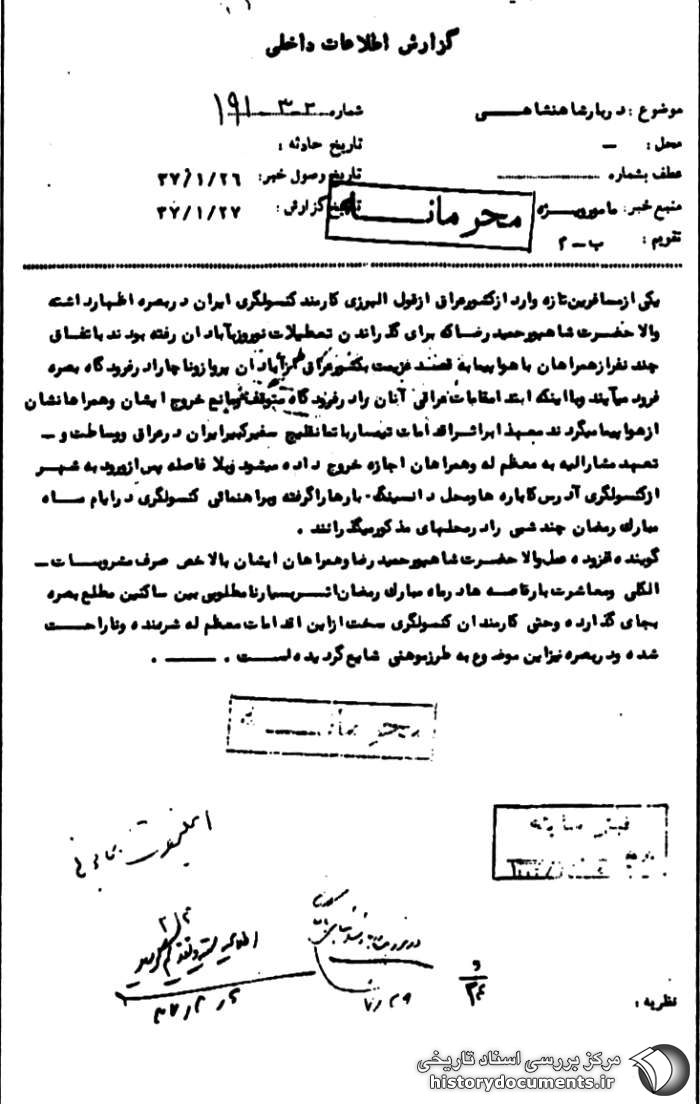 گزارش اطلاعات داخلی
موضوع : دربار شاهنشاهی
شماره ۱۹۱-۳-۲
محل : -
تاریخ حادثه :
عطف بشماره
تاریخ وصول خبر: ۳۷/۱/۲۶
منبع خبر: مامور ویژه
تاریخ گزارش : ۳۷/۱/۲۷
تقویم : ب-۲
محرمانه
یکی از مسافرین تازه وارد از کشور عراق از قول البرزی کارمند کنسولگری ایران در بصره اظهار داشته
والا حضرت شاهپور حمید رضا که برای گذراندن تعطیلات نوروز بآبادان رفته بودند باتفاق
چند نفر از همراهان با هواپیما به قصد عزیمت بکشور عراق از آبادان پرواز و ناچارا در فرودگاه بصره
فرود میآیند و با اینکه ابتدا مقامات عراقی آنان را در فرودگاه متوقف و مانع خروج ایشان و همراهانشان
از هواپیما میگردند معهذا بر اثر اقدامات تیمسار باتمانقلیج سفیر کبیر ایران در عراق و وساطت و -
تعهد مشارالیه به معظم له و همراهان اجازه خروج داده میشود و بلا فاصله پس از ورود به شهر
از کنسولگری آدرس کاباره ها و محل دانسینگ - بارها را گرفته و براهنمائی کنسولگری در ایام ماه
مبارک رمضان چند شبی را در محلهای مذکور میگذرانند .
گوینده افزوده عمل والا حضرت شاهپور حمید رضا و همراهان ایشان بالاخص صرف مشروبات -
الکلی و معاشرت با رقاصه ها در ماه مبارک رمضان اثر بسیار نا مطلوبی بین ساکنین مطلع بصره
بجای گذارده و حتی کارمندان کنسولگری سخت از این اقدامات معظم له شرمنده و ناراحت
شده و در بصره نیز این موضوع به طرز موهنی شایع گردیده است . ـــــ .
محرمانه
۲/۲
۳۷/۲/۲
۲۴
نظریه :
مرکز بررسی اسناد تاریخی
historydocuments.ir